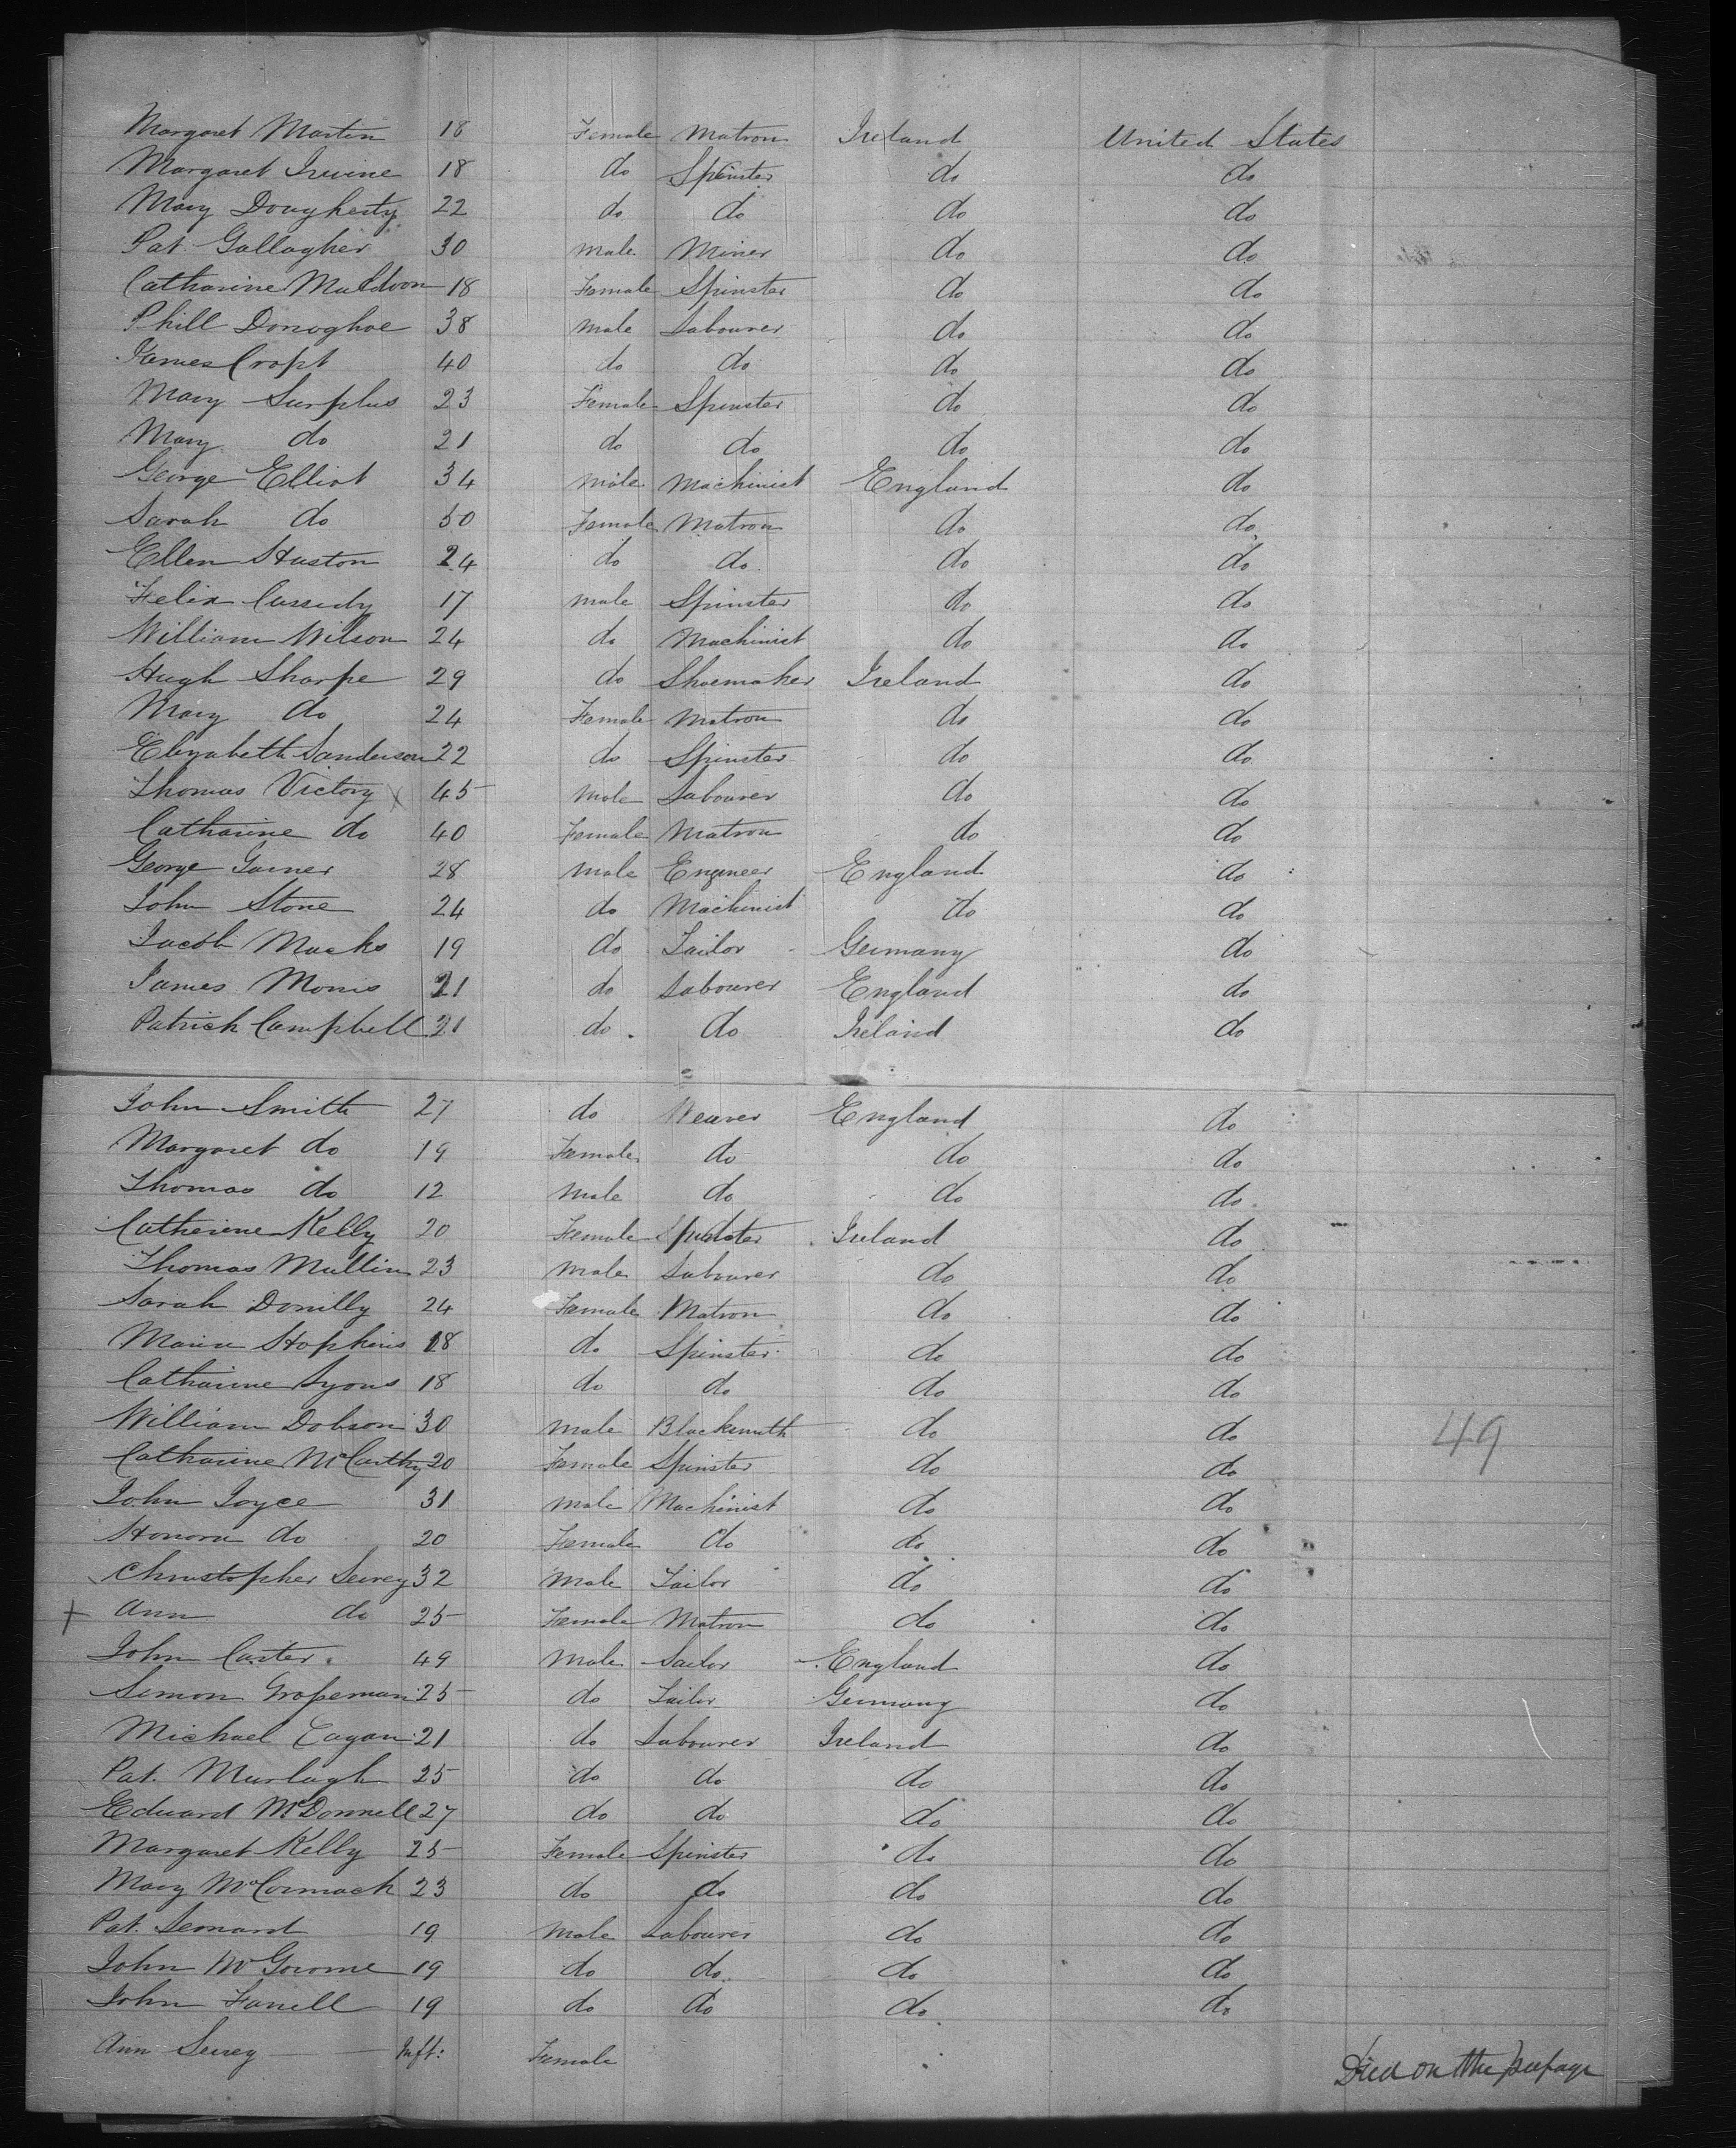 Margaret Martin 18 Female Matron Ireland United States
Margaret Irvine 18 do Spinster do do
Mary Dougherty 22 do do do do
Pat. Gallagher 30 male Miner do do
Catharine Muldoon 18 Female Spinster do do
Phill Donoghoe 38 male Labourer do do
James Cropt 40 do do do do
Mary Surplus 23 Female Spinster do do
Mary do 21 do do do do
George Elliot 34 male Machinist England do
Sarah do 30 Female Matron do do
Ellen Huston 24 do do do do
Felix Cassidy 17 male Spinster do do
William Wilson 24 do Machinist do do
Hugh Sharpe 29 do Shoemaker Ireland do
Mary do 24 Female Matron do do
Elizabeth Sanderson 22 do Spinster do do
Thomas Victory x 45 Male Labourer do do
Catharine do 40 Female Matron do do
George 28 male Engineer England do
John Stone 24 do Machinist do do
Jacob Macks 19 do Tailor Germany do
James Morris 21 do Labourer England do
Patrick Campbell 21 do do Ireland do
John Smith 27 do Weaver England do
Margaret do 19 Female do do do
Thomas do 12 Male do do do
Catherine Kelly 20 Female Spinster Ireland do
Thomas Mullin 23 Male Labourer do do
Sarah Donilly 24 Female Matron do do
Maria Hopkins 18 do Spinster do do
Catharine Lyons 18 do do do do
William Dobson 30 Male Blacksmith do do 49
Catharine McCarthy 20 Female Spinster do do
John Joyce 31 Male Machinist do do
Honora do 20 Female do do do
Christopher 32 Male Tailor do do
+ Ann do 25 Female Matron do do
John Carter 49 Male Sailor England do
Simon 25 do Tailor Germany do
Michael Cagan 21 do Labourer Ireland do
Pat. Murtagh 25 do do do do
Edward McDonnell 27 do do do do
Margaret Kelly 25 Female Spinster do do
Mary McCormack 23 do do do do
Pat. Lennard 19 Male Labourer do do
John 19 do do do do
John Farrell 19 do do do do
Ann Inft: Female Died on the